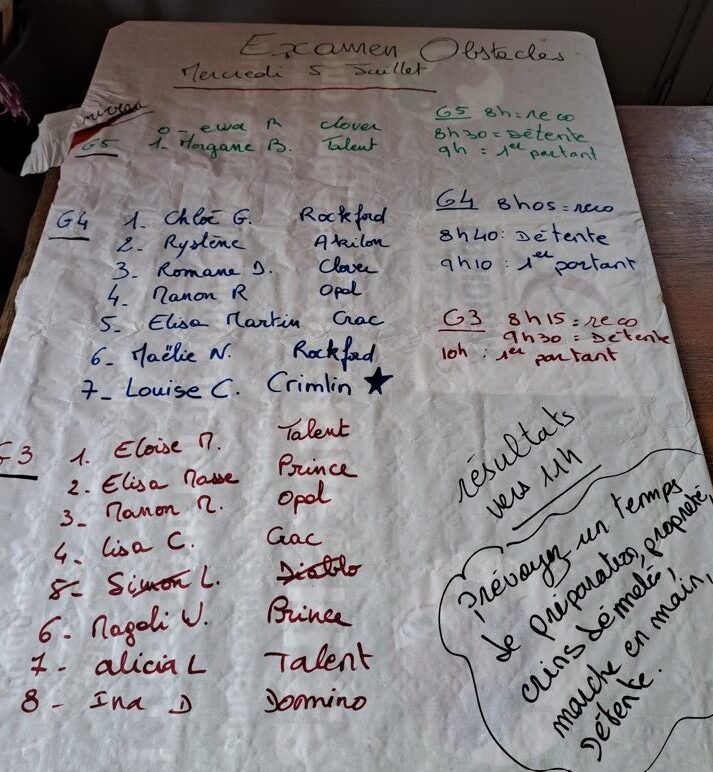 Examen Obstacles
Mercredi 5 Juillet
niveau
G5
0 - ewa R Clover
1. Morgane B. Talent
G5 8h = reco
8h30 = Détente
9h = 1er partant
G4
1. Chloé G. Rockford
2. Rystène Akilon
3. Romane D. Clover
4. Manon R Opal
5. Elisa Martin Crac
6 - Maëlie N. Rockford
7 - Louise C. Crimlin ★
G4 8h05 = reco
8h40 : Détente
9h10 : 1er partant
G3 8h15 = reco
9h30 = Détente
10h : 1er partant
G3
1. Eloïse M. Talent
2. Elisa Masse Prince
3 - Manon M. Opal
4 - Lisa C. Crac
5 - Simon L. Diablo
6 - Magali W. Prince
7 - alicia L Talent
8 - Ina D Domino
résultats
vers 11h
Prévoyez un temps
de préparation, propreté,
crins démêlé,
marche en main,
Détente.